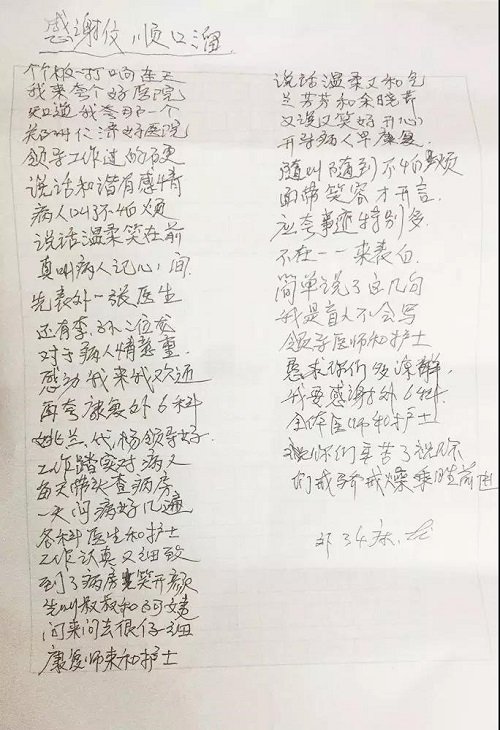 感谢信 顺口溜
竹板一打响连天
我来夸个好医院
知道我夸那一个
名叫仁济好医院
领导工作过的硬
说话和谐有感情
病人叫了不怕烦
说话温柔笑在前
真叫病人记心间
先表外一张医生
还有李 二位龙
对于病人情意重
感动我来我欢迎
再夸康复外6科
姚兰、代、杨领导好
工作踏实对病人
每天带头查病房
一天问病好几遍
各科医生和护士
工作认真又细致
到了病房笑开颜
先叫叔叔和阿姨
问来问去很仔细
康复师来和护士
说话温柔又和气
兰芳芳和余晓芳
又说又笑好开心
开导病人早康复
随叫随到不怕烦
面带笑容才开言
应夸事迹特别多
不在一一来表白
简单说了这几句
我是盲人不会写
领导医师和护士
恳求你们多谅解
我要感谢外6科
全体医师和护士
你们辛苦了祝你
们戒骄戒燥乘胜前进
外34床